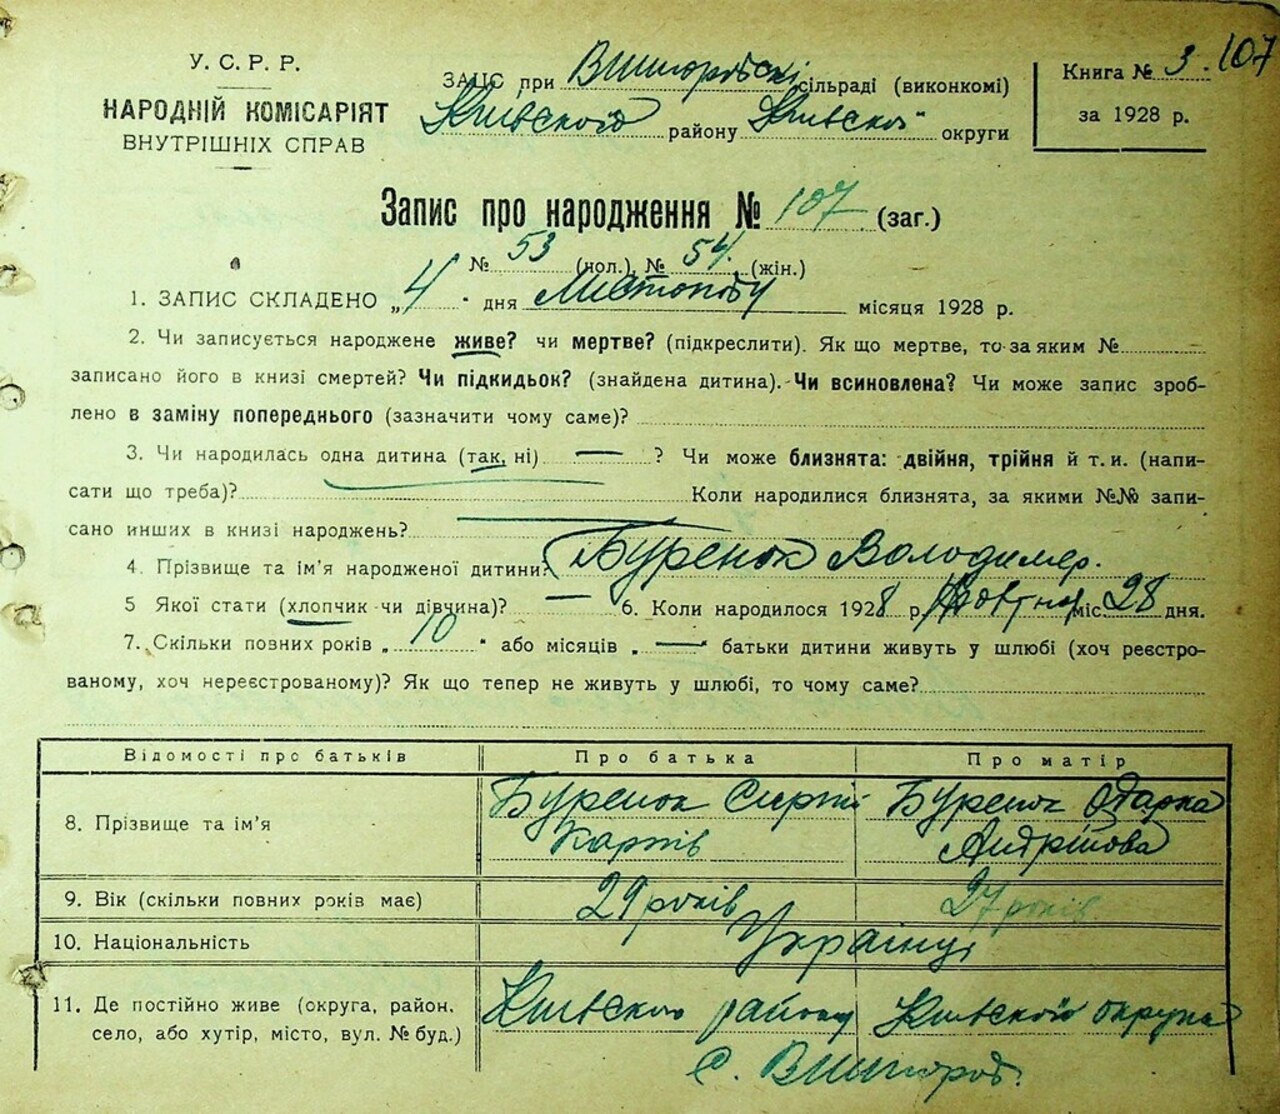 У. С. Р. Р.
НАРОДНІЙ КОМІСАРІЯТ
ВНУТРІШНІХ СПРАВ
ЗАГС при Вишгородські сільраді (виконкомі)
Київського району Київської округи
Книга № 3. 107
за 1928 р.
Запис про народження № 107 (заг.)
№ 53 (чол.), № 54. (жін.)
1. ЗАПИС СКЛАДЕНО „4" дня Листопаду місяця 1928 р.
2. Чи записується народжене живе? чи мертве? (підкреслити). Як що мертве, то за яким №
записано його в книзі смертей? Чи підкидьок? (знайдена дитина). Чи всиновлена? Чи може запис зроб-
лено в заміну попереднього (зазначити чому саме)?
3. Чи народилась одна дитина (так, ні) — ? Чи може близнята: двійня, трійня й т. и. (напи-
сати що треба)? Коли народилися близнята, за якими №№ запи-
сано инших в книзі народжень?
4. Прізвище та ім'я народженої дитини? Буренок Володимер.
5 Якої стати (хлопчик чи дівчина)? — 6. Коли народилося 1928 р. Жовтня міс. 28 дня.
7. Скільки повних років „ 10 " або місяців „ — " батьки дитини живуть у шлюбі (хоч реєстро-
ваному, хоч нереєстрованому)? Як що тепер не живуть у шлюбі, то чому саме?
Відомості про батьків Про батька Про матір
8. Прізвище та ім'я Буренок Сергій Буренок Одарка
Карпів Андріїова
9. Вік (скільки повних років має) 29 років 27 років
10. Національність Українці
11. Де постійно живе (округа, район, Київського району Київської округи
село, або хутір, місто, вул. № буд.) с. Вишгород.